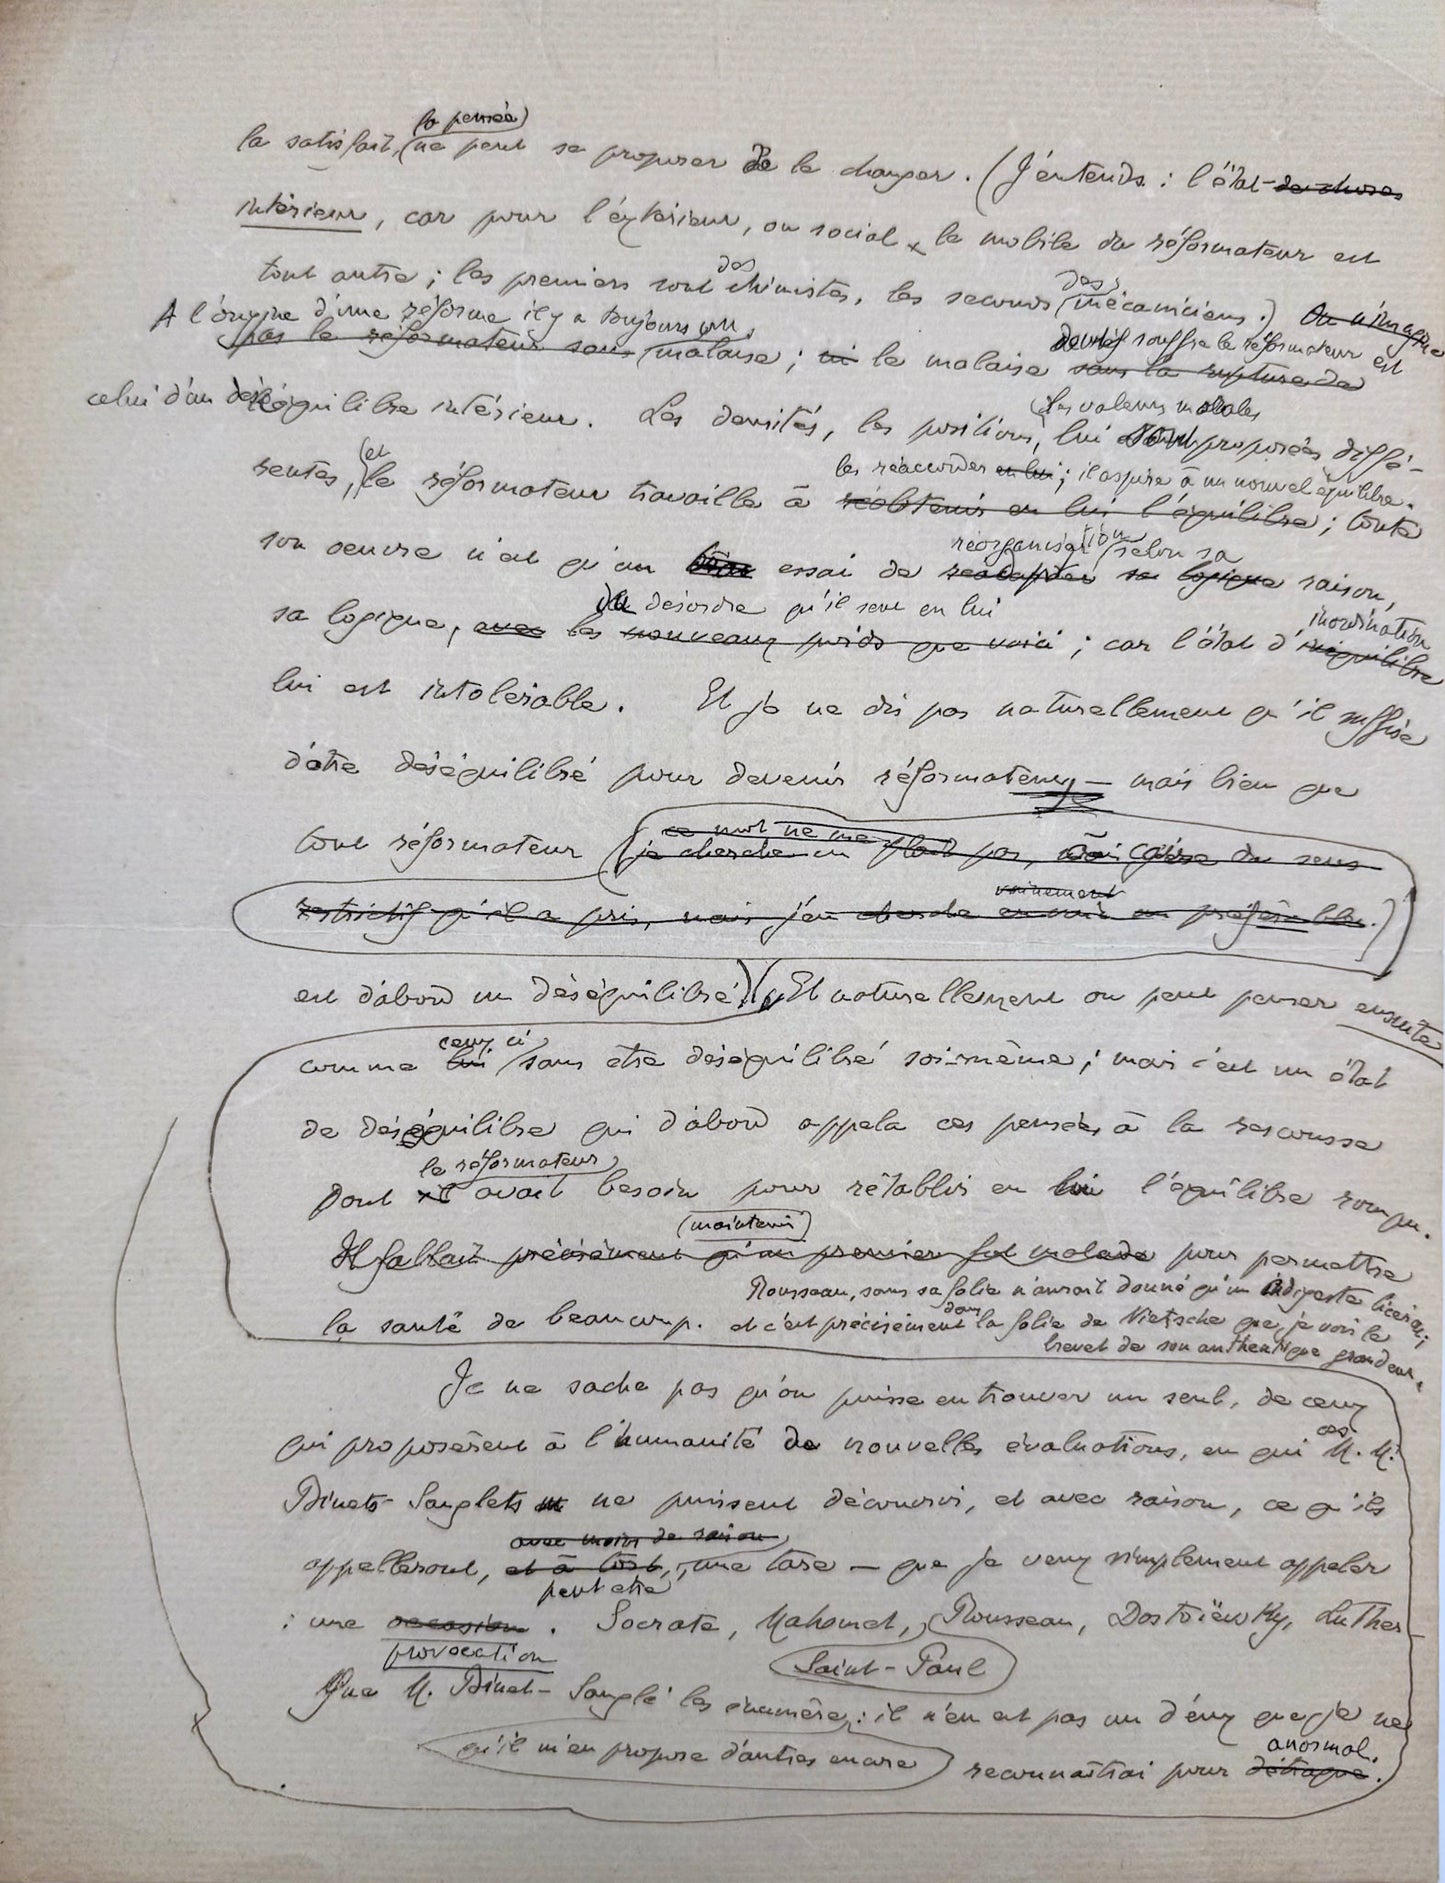 la pensée
la satisfait, ne peut se proposer de le changer. (J'entends : l'état de choses
intérieur, car pour l'éxtérieur, ou social, le mobile du réformateur est
des
tout autre ; les premiers sont chimistes, les seconds (mécaniciens.) On n'imagine
des
A l'origine d'une réforme il y a toujours un
pas le réformateur sans malaise ; ni le malaise sans la rupture de
dont souffre le réformateur est
celui d'un déséquilibre intérieur. Les densités, les positions, lui sont proposées diffé-
les valeurs morales
rentes, et le réformateur travaille à réobtenir en lui l'équilibre ; toute
les réaccorder en lui ; il aspire à un nouvel équilibre.
son oeuvre n'est qu'un essai de réadapter sa logique raison,
réorganisation selon sa
du désordre qu'il sent en lui
sa logique, avec les nouveaux poids que voici ; car l'état d'inéquilibre
inordination
lui est intolérable. Et je ne dis pas naturellement qu'il suffise
d'être déséquilibré pour devenir réformateur — mais bien que
ce mot ne me
tout réformateur (je cherche en plait pas, à cause du sens
vainement
restrictif qu'il a pris, mais j'en cherche en vain un préférable.)
est d'abord un déséquilibré. Et naturellement on peut penser ensuite
ceux ci
comme lui sans être déséquilibré soi-même ; mais c'est un état
de déséquilibre qui d'abord appela ces pensées à la rescousse
le réformateur
dont il avait besoin pour rétablir en lui l'équilibre rompu.
maintenir
Il fallait précisément qu'un premier fut malade pour permettre
Rousseau, sans sa folie n'aurait donné qu'un indigeste Cicéron ;
la santé de beaucoup. et c'est précisément dans la folie de Nietsche que je vois le
brevet de son authentique grandeur.
Je ne sache pas qu'on puisse en trouver un seul, de ceux
qui proposèrent à l'humanité de nouvelles évaluations, en qui ces M.M.
Binets-Sanglets ne puissent découvrir, et avec raison, ce qu'ils
avec moins de raison
appelleront, et à tort, une tare — que je veux simplement appeler
peut etre
: une occasion. Socrate, Mahomet, Rousseau, Dostoïewsky, Luther
provocation
Saint-Paul
Que M. Binet-Sanglé les énumère : il n'en est pas un d'eux que je ne
qu'il m'en propose d'autres encore
reconnaîtrai pour détraqué.
anormal.